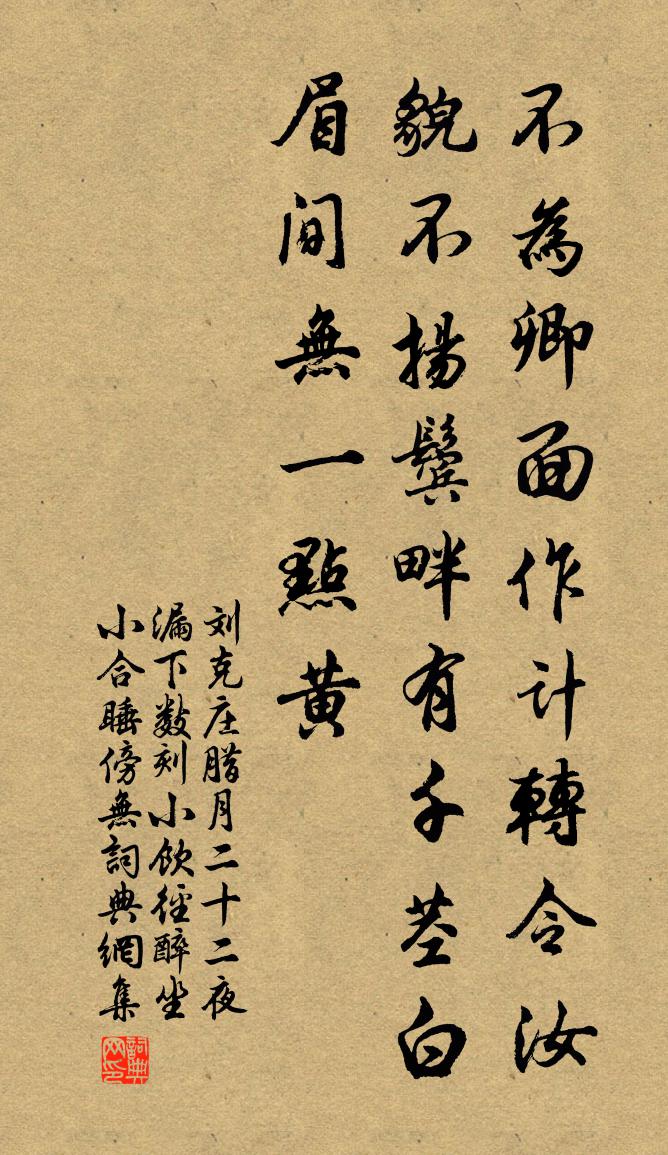 不為卿面作計轉令汝
貌不揚鬢畔有千莖白
眉间無一點黃
刘克庄腊月二十二夜
漏下数刻小飲徑醉坐
小合睡傍無詞典網集
詞典
网印